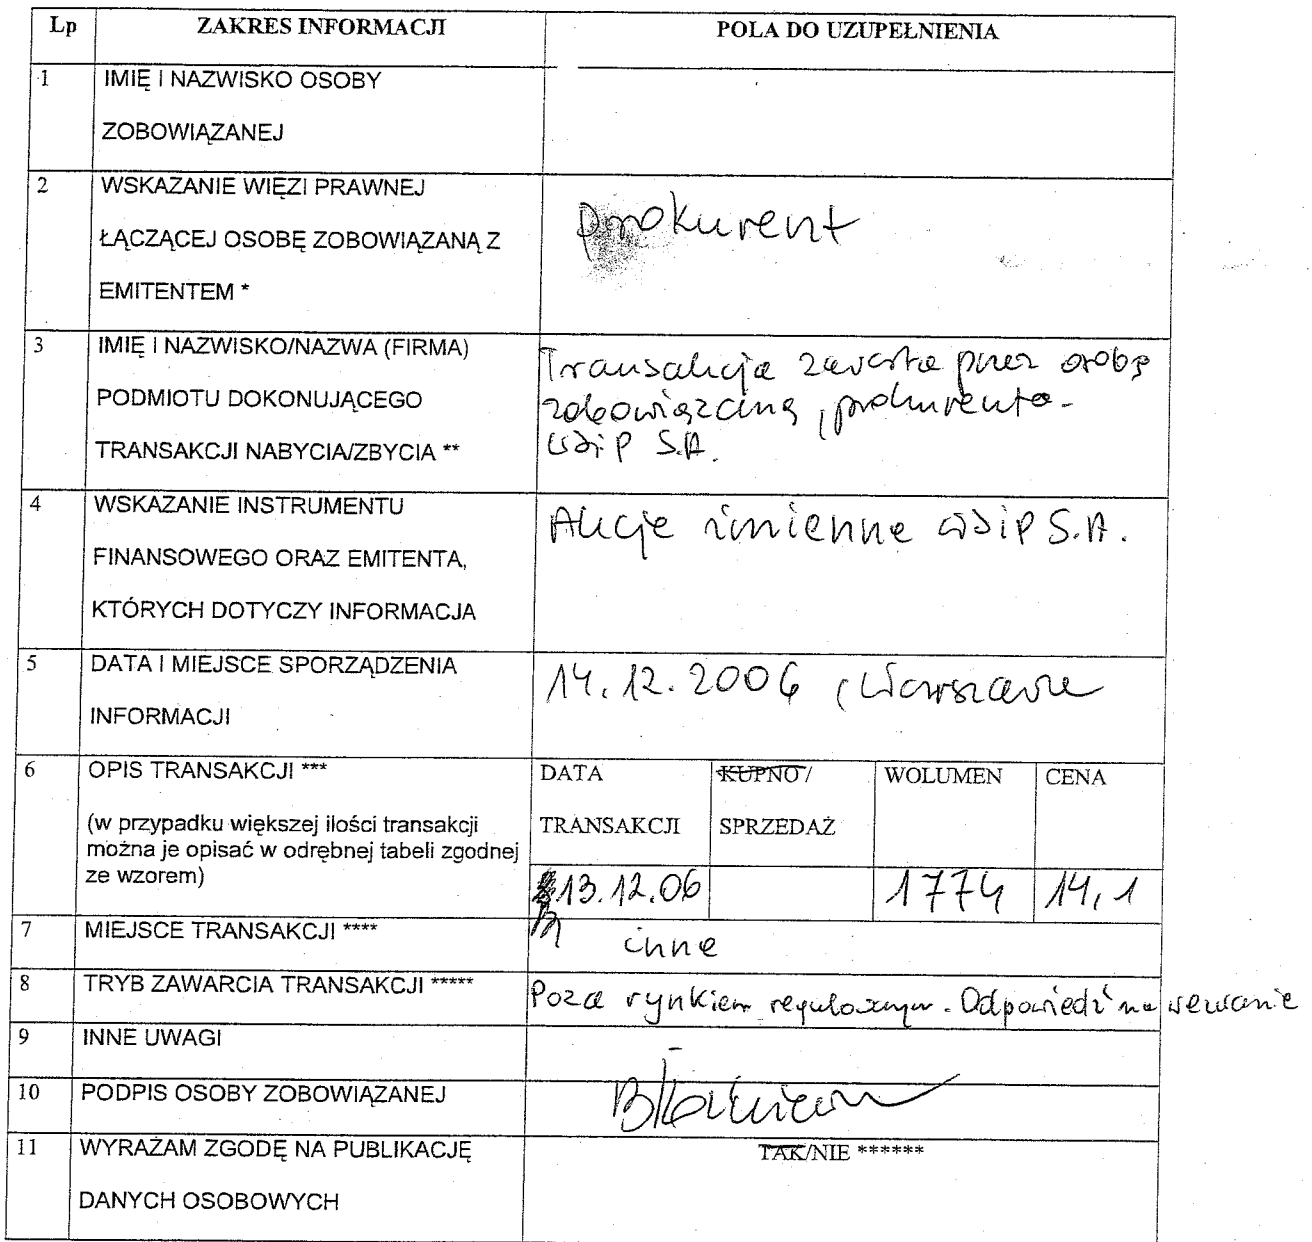 Lp ZAKRES INFORMACJI POLA DO UZUPEŁNIENIA
1 IMIĘ I NAZWISKO OSOBY
ZOBOWIĄZANEJ
2 WSKAZANIE WIĘZI PRAWNEJ
ŁĄCZĄCEJ OSOBĘ ZOBOWIĄZANĄ Z
EMITENTEM *
prokurent
3 IMIĘ I NAZWISKO/NAZWA (FIRMA)
PODMIOTU DOKONUJĄCEGO
TRANSAKCJI NABYCIA/ZBYCIA **
Transakcja zawarta przez osobę
zobowiązaną, prokurenta
WSiP S.A.
4 WSKAZANIE INSTRUMENTU
FINANSOWEGO ORAZ EMITENTA,
KTÓRYCH DOTYCZY INFORMACJA
Akcje imienne WSiP S.A.
5 DATA I MIEJSCE SPORZĄDZENIA
INFORMACJI
14.12.2006, Warszawa
6 OPIS TRANSAKCJI ***
(w przypadku większej ilości transakcji
można je opisać w odrębnej tabeli zgodnej
ze wzorem)
DATA KUPNO / WOLUMEN CENA
TRANSAKCJI SPRZEDAŻ
13.12.06 1774 14,1
7 MIEJSCE TRANSAKCJI ****
inne
8 TRYB ZAWARCIA TRANSAKCJI *****
Poza rynkiem regulowanym. Odpowiedź na wezwanie
9 INNE UWAGI
-
10 PODPIS OSOBY ZOBOWIĄZANEJ
11 WYRAŻAM ZGODĘ NA PUBLIKACJĘ
DANYCH OSOBOWYCH
TAK/NIE ******